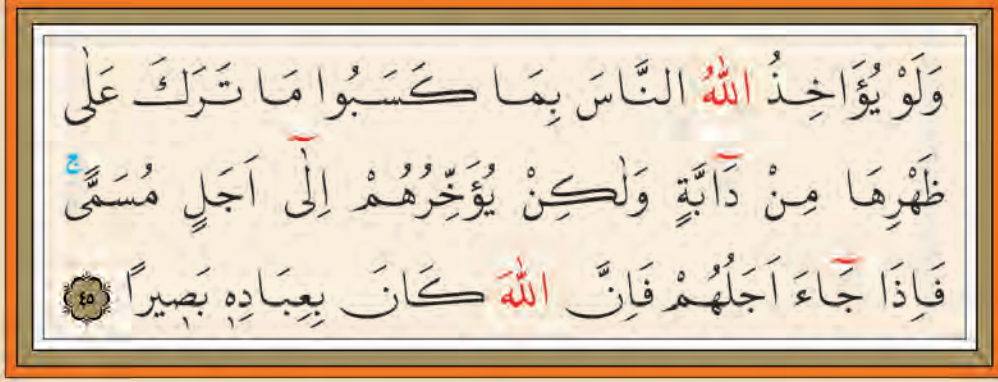 وَلَوْ يُؤَاخِذُ اللّٰهُ النَّاسَ بِمَا كَسَبُوا مَا تَرَكَ عَلٰى
ظَهْرِهَا مِنْ دَٓابَّةٍ وَلٰكِنْ يُؤَخِّرُهُمْ اِلٰٓى اَجَلٍ مُسَمًّىۚ
فَاِذَا جَٓاءَ اَجَلُهُمْ فَاِنَّ اللّٰهَ كَانَ بِعِبَادِهٖ بَصٖيرًا ٤٥